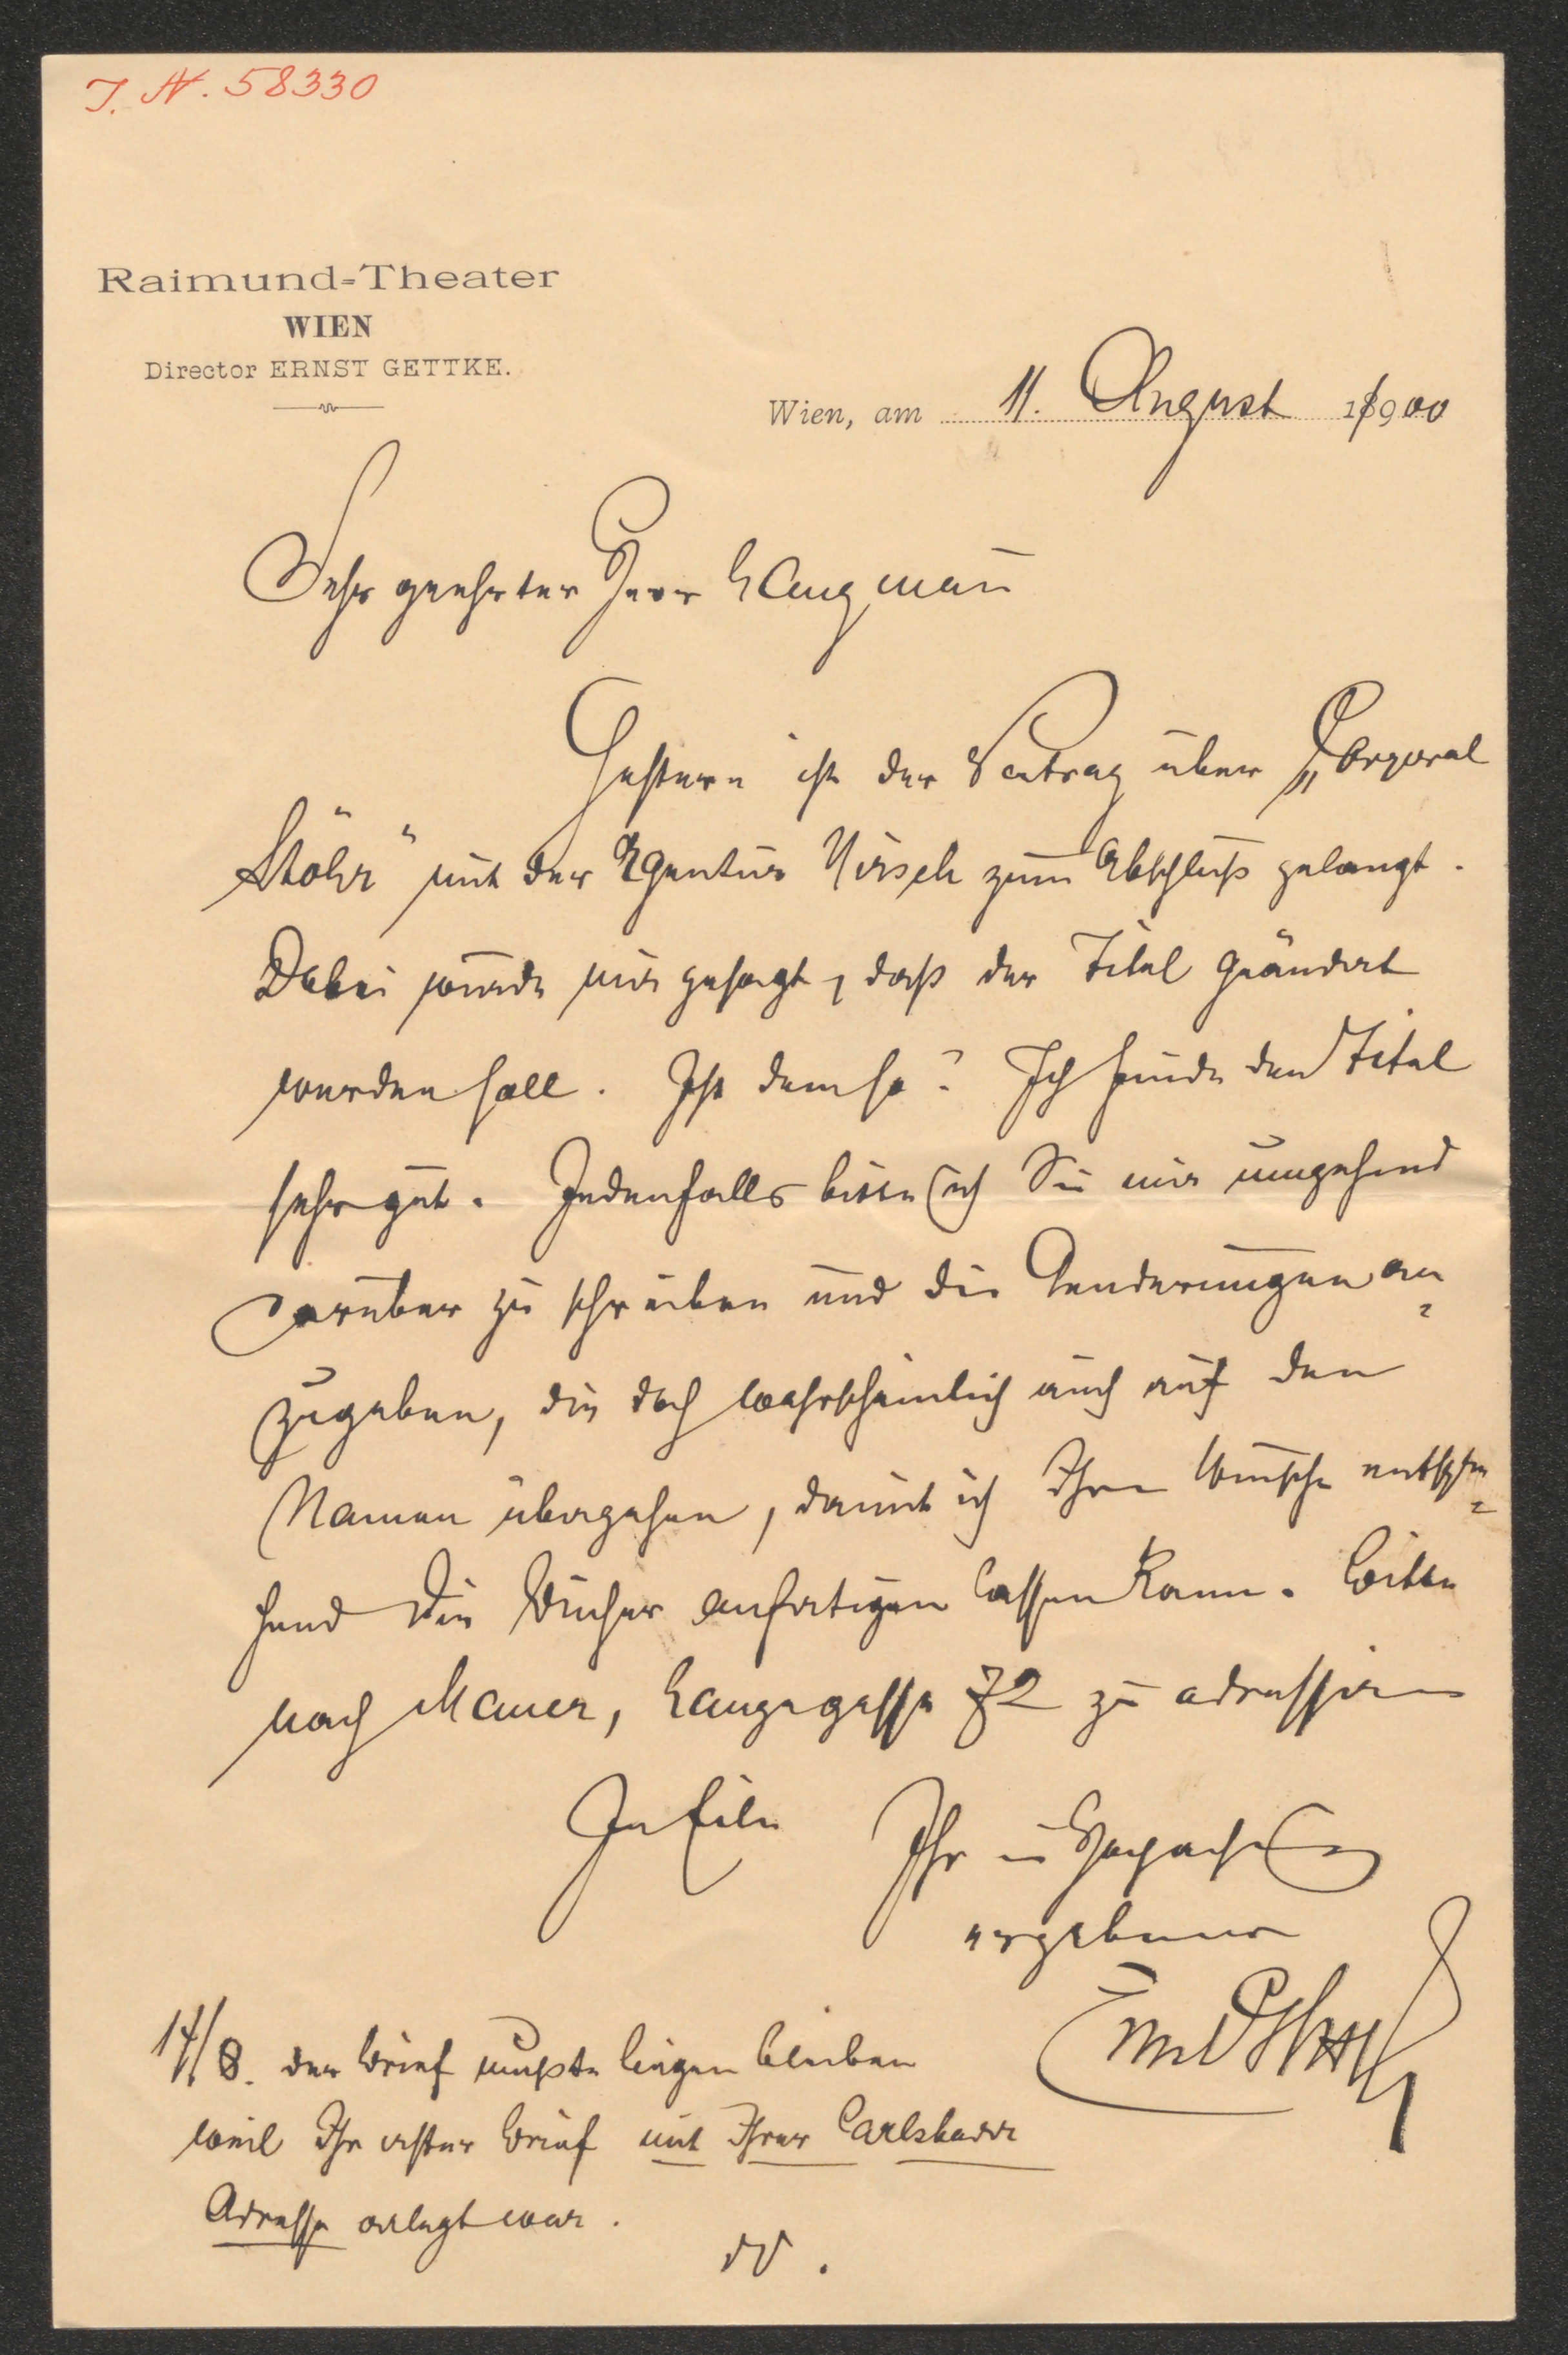 I. N. 58330
Raimund-Theater
WIEN
Director ERNST GETTKE.
Wien, am 11. August 1900
Sehr geehrter Herr Langmann
Gestern ist der Vertrag über „Corporal
Stöhr" mit der Agentur Hirsch zum Abschluß gelangt.
Dabei wurde mir gesagt, daß der Titel geändert
werden soll. Ist dem so? Ich finde den Titel
sehr gut. Jedenfalls bitte ich Sie mir umgehend
darüber zu schreiben und die Aenderungen an
zugeben, die doch wahrscheinlich auch auf den
Namen übergehen, damit ich Ihrem Wunsche entspre
hend die Bücher anfertigen lassen kann. Bitte
nach Mauer, Langegasse 72 zu adressiren
In Eile Ihr in Hochachtung
ergebener
Ernst Gettke
14/8. der Brief mußte liegen bleiben
weil Ihr erster Brief mit Ihrer Carlsbader
Adresse verlegt war.